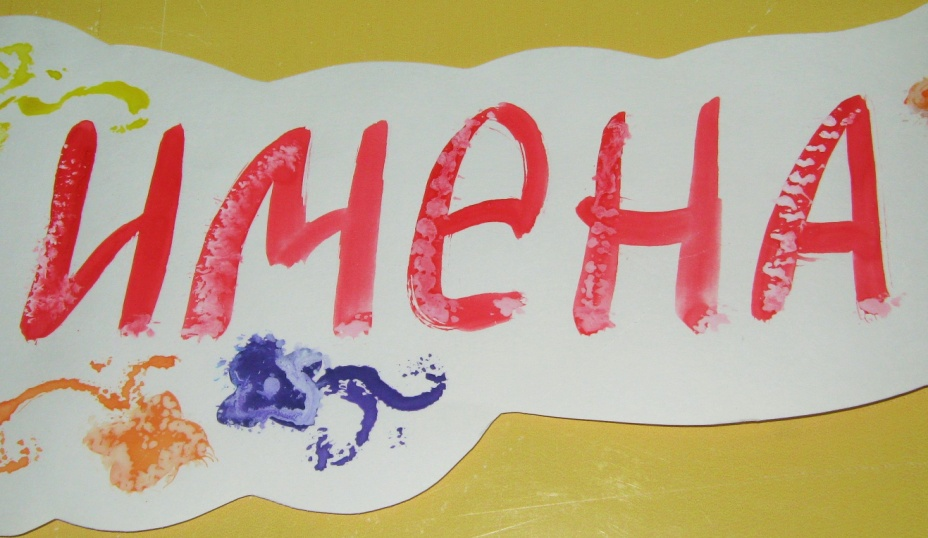 имена